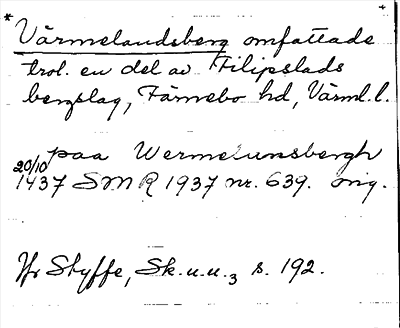 * Värmelandsberg omfattade
trol. en del av Filipstads
bergslag, Färnebo hd, Värml. l.
paa Wermelunsbergh
20/10 1437 SMR 1937 nr. 639. orig.
Jfr Styffe, Sk.u.u.3 s. 192.